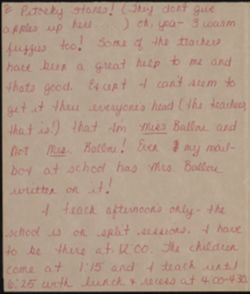 2 Petosky stones! (They don't give
apples up here      ) Oh, yea - 3 warm
fuzzies too! Some of the teachers
have been a great help to me and
thats good. Except I can't seem to
get it thru everyone's head (the teachers,
that is!) that Im Miss Ballou and
not Mrs. Ballou! Even my mail-
box at school has Mrs. Ballou
written on it!
I teach afternoon's only - the
school is on split sessions. I have
to be there at 12:00. The children
come at 1:15 and I teach until
5:25 with lunch & recess at 4:00-4:30.